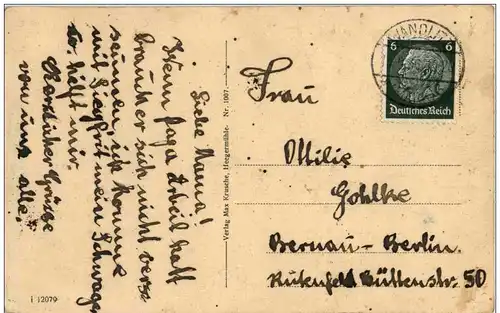 Liebe Mama!
Wenn Papa Urteil hatt
brauchst er sich nicht vers
seumen, ich komme
mit Siegfrit mein Schwager
so. hilft mir.
Herzlicher Grüsse
von uns alle.
I 12079
Verlag Max Krusche, Heegermühle. Nr. 1007.
WANDLITZ
6 6
Deutsches Reich
Frau
Ottilie
Gohlke
Bernau – Berlin.
Rutenfeld Büttenstr. 50